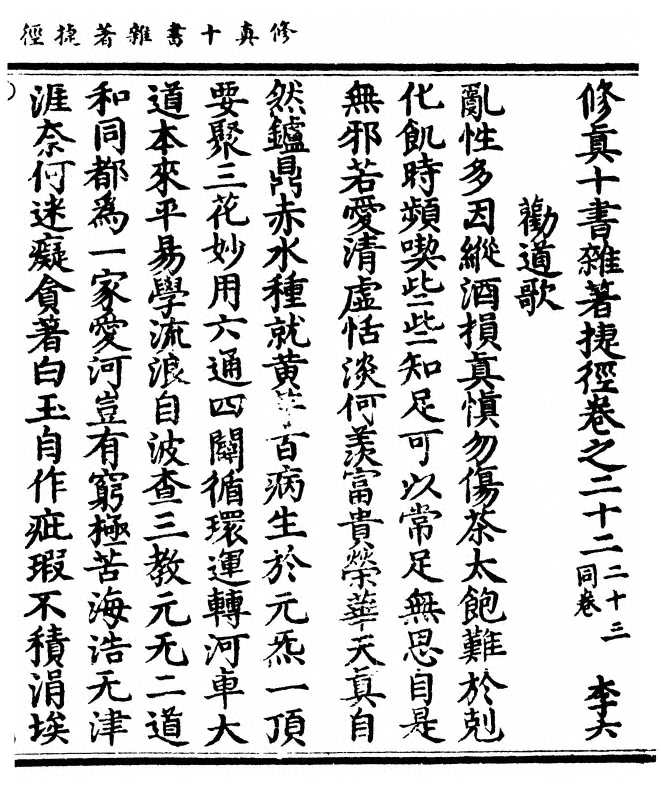 修真十書雜著捷徑
修眞十書雜著捷徑卷之二十二 二十三同卷 李六
勸道歌
亂性多因縱酒損眞愼勿傷茶太飽難於剋
化飢時頻喫些些知足可以常足無思自是
無邪若愛清虛恬淡何羨富貴榮華天真自
然鑪鼎赤水種就黃芽百病生於元炁一頂
要聚三花妙用六通四闢循環運轉河車大
道本來平易學流浪自波查三教元无二道
和同都爲一家愛河豈有窮極苦海浩无津
涯奈何迷癡貪著白玉自作疵瑕不積涓埃